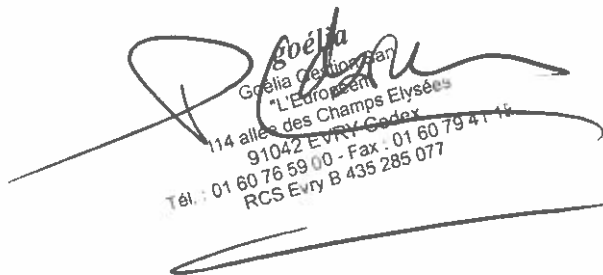 goélia
Goélia Gestion
"L'Européen"
114 allée des Champs Elysées
91042 EVRY Cedex
Tél. : 01 60 76 59 00 - Fax : 01 60 79 41
RCS Evry B 435 285 077